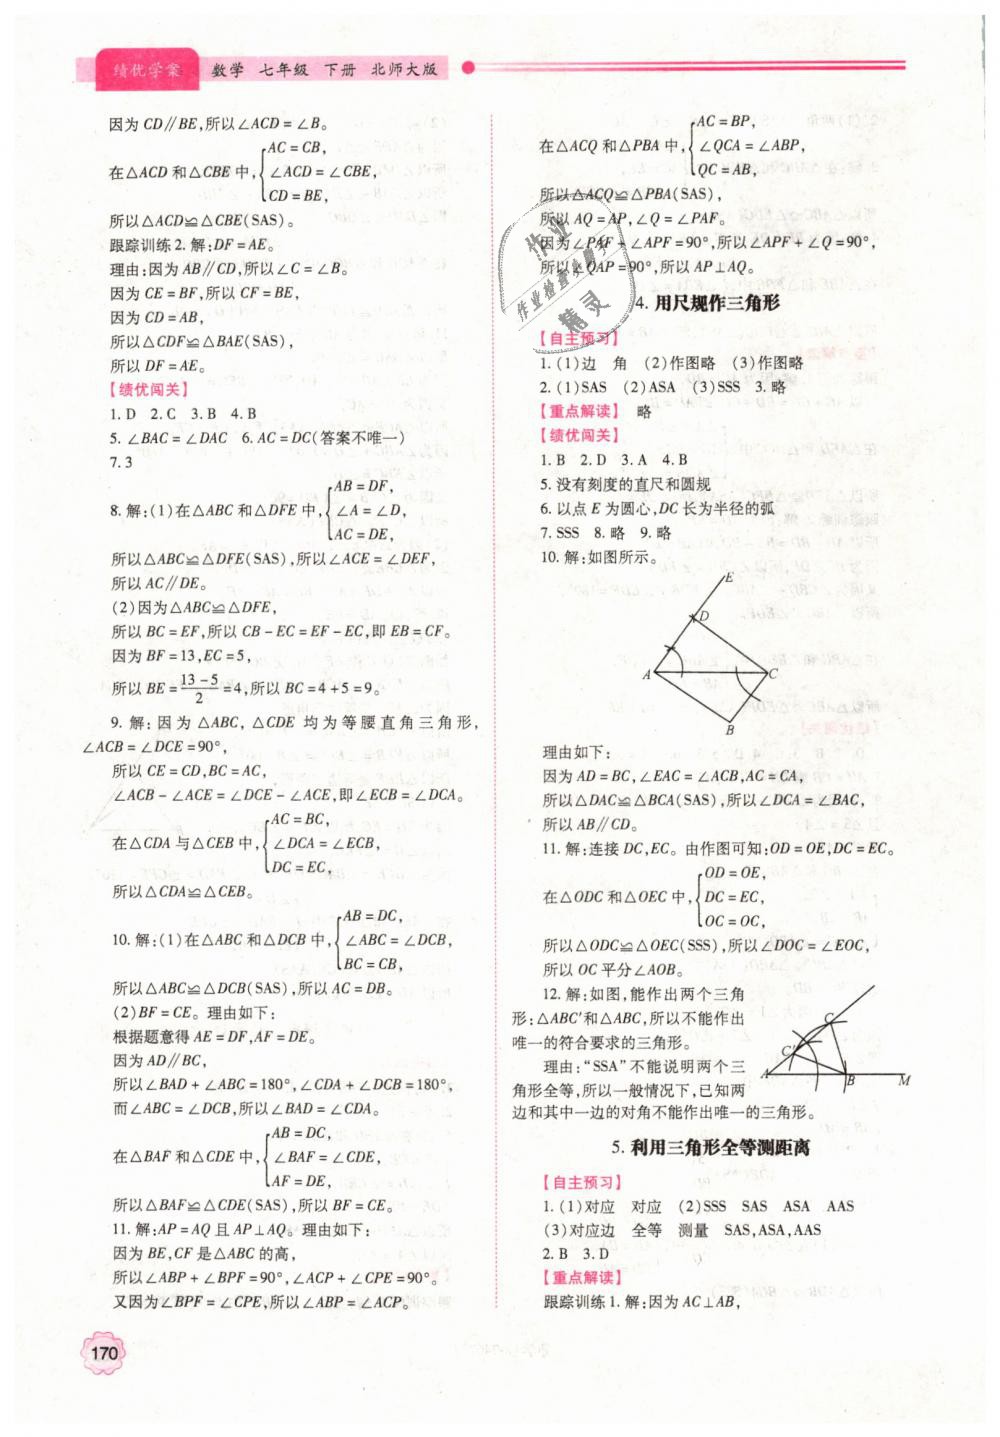 绩优学案 数学 七年级 下册 北师大版
因为 CD∥BE,所以∠ACD=∠B。
在△ACD 和△CBE 中,{AC=CB,
∠ACD=∠CBE,
CD=BE,
所以△ACD≌△CBE(SAS)。
跟踪训练2.解:DF=AE。
理由:因为 AB∥CD,所以∠C=∠B。
因为 CE=BF,所以 CF=BE,
因为 CD=AB,
所以△CDF≌△BAE(SAS),
所以 DF=AE。
【绩优闯关】
1.D 2.C 3.B 4.B
5.∠BAC=∠DAC 6.AC=DC(答案不唯一)
7.3
8.解:(1)在△ABC 和△DFE 中,{AB=DF,
∠A=∠D,
AC=DE,
所以△ABC≌△DFE(SAS),所以∠ACE=∠DEF,
所以 AC∥DE。
(2)因为△ABC≌△DFE,
所以 BC=EF,所以 CB-EC=EF-EC,即 EB=CF。
因为 BF=13,EC=5,
所以 BE=(13-5)/2=4,所以 BC=4+5=9。
9.解:因为△ABC,△CDE 均为等腰直角三角形,
∠ACB=∠DCE=90°,
所以 CE=CD,BC=AC,
∠ACB-∠ACE=∠DCE-∠ACE,即∠ECB=∠DCA。
在△CDA 与△CEB 中,{AC=BC,
∠DCA=∠ECB,
DC=EC,
所以△CDA≌△CEB。
10.解:(1)在△ABC 和△DCB 中,{AB=DC,
∠ABC=∠DCB,
BC=CB,
所以△ABC≌△DCB(SAS),所以 AC=DB。
(2)BF=CE。理由如下:
根据题意得 AE=DF,AF=DE。
因为 AD∥BC,
所以∠BAD+∠ABC=180°,∠CDA+∠DCB=180°,
而∠ABC=∠DCB,所以∠BAD=∠CDA。
在△BAF 和△CDE 中,{AB=DC,
∠BAF=∠CDE,
AF=DE,
所以△BAF≌△CDE(SAS),所以 BF=CE。
11.解:AP=AQ 且 AP⊥AQ。理由如下:
因为 BE,CF 是△ABC 的高,
所以∠ABP+∠BPF=90°,∠ACP+∠CPE=90°。
又因为∠BPF=∠CPE,所以∠ABP=∠ACP。
170
在△ACQ 和△PBA 中,{AC=BP,
∠QCA=∠ABP,
QC=AB,
所以△ACQ≌△PBA(SAS),
所以 AQ=AP,∠Q=∠PAF。
因为∠PAF+∠APF=90°,所以∠APF+∠Q=90°,
所以∠QAP=90°,所以 AP⊥AQ。
作业
作业检查
精灵
4.用尺规作三角形
【自主预习】
1.(1)边 角 (2)作图略 (3)作图略
2.(1)SAS (2)ASA (3)SSS 3.略
【重点解读】 略
【绩优闯关】
1.B 2.D 3.A 4.B
5.没有刻度的直尺和圆规
6.以点 E 为圆心,DC 长为半径的弧
7.SSS 8.略 9.略
10.解:如图所示。
E
D
A
C
B
理由如下:
因为 AD=BC,∠EAC=∠ACB,AC=CA,
所以△DAC≌△BCA(SAS),所以∠DCA=∠BAC,
所以 AB∥CD。
11.解:连接 DC,EC。由作图可知:OD=OE,DC=EC。
在△ODC 和△OEC 中,{OD=OE,
DC=EC,
OC=OC,
所以△ODC≌△OEC(SSS),所以∠DOC=∠EOC,
所以 OC 平分∠AOB。
12.解:如图,能作出两个三角
形:△ABC′和△ABC,所以不能作出
唯一的符合要求的三角形。
理由:“SSA”不能说明两个三
角形全等,所以一般情况下,已知两
边和其中一边的对角不能作出唯一的三角形。
C
C′
A
B
M
5.利用三角形全等测距离
【自主预习】
1.(1)对应 对应 (2)SSS SAS ASA AAS
(3)对应边 全等 测量 SAS,ASA,AAS
2.B 3.D
【重点解读】
跟踪训练1.解:因为 AC⊥AB,